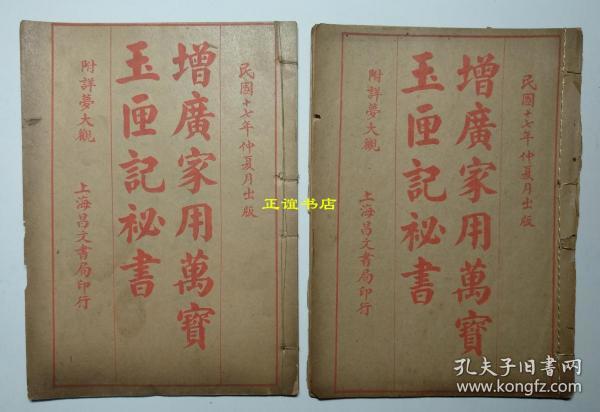 民國十七年仲夏月出版
增廣家用萬寶
玉匣記祕書
附詳夢大觀
上海昌文書局印行
民國十七年仲夏月出版
增廣家用萬寶
玉匣記祕書
附詳夢大觀
上海昌文書局印行
正谊书店
孔夫子旧书网
www.kongfz.com